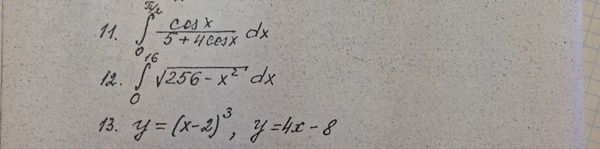 11. ∫₀^{π/2} cos x / (5 + 4cos x) dx
12. ∫₀^{16} √(256 − x²) dx
13. y = (x−2)³, y = 4x − 8